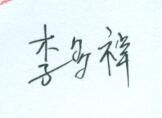 李多祥